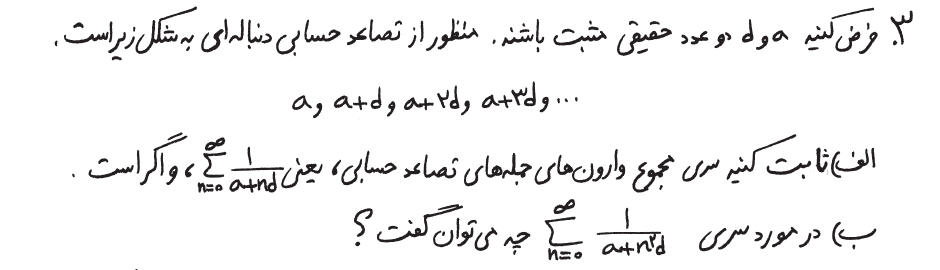 ۳. فرض کنید a و d دو عدد حقیقی مثبت باشند. منظور از تصاعد حسابی دنباله‌ای به شکل زیر است.
a و a+d و a+۲d و a+۳d و ...
الف) ثابت کنید سری مجموع وارون‌های جمله‌های تصاعد حسابی، یعنی \sum_{n=0}^{\infty} \frac{1}{a+nd}، واگراست.
ب) در مورد سری \sum_{n=0}^{\infty} \frac{1}{a+n^۲d} چه می‌توان گفت؟